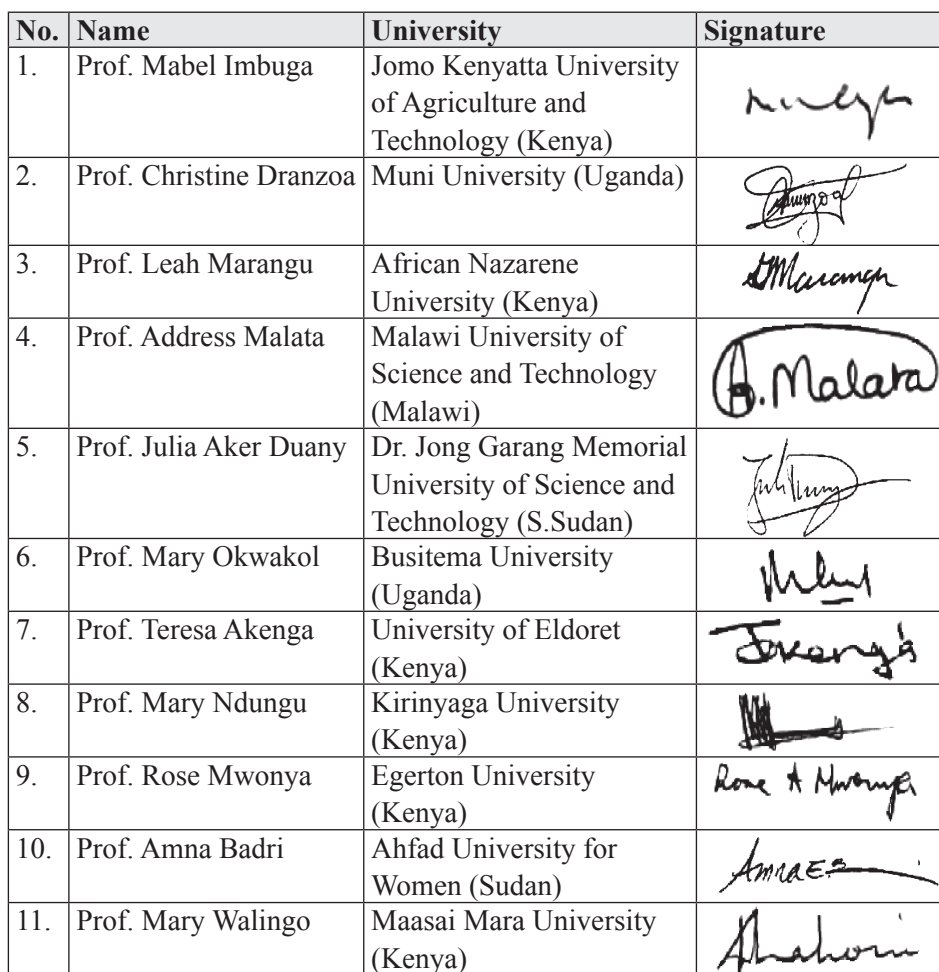 No. Name University Signature
1. Prof. Mabel Imbuga Jomo Kenyatta University
of Agriculture and
Technology (Kenya)
2. Prof. Christine Dranzoa Muni University (Uganda)
3. Prof. Leah Marangu African Nazarene
University (Kenya)
4. Prof. Address Malata Malawi University of
Science and Technology
(Malawi)
A. Malata
5. Prof. Julia Aker Duany Dr. Jong Garang Memorial
University of Science and
Technology (S.Sudan)
6. Prof. Mary Okwakol Busitema University
(Uganda)
7. Prof. Teresa Akenga University of Eldoret
(Kenya)
8. Prof. Mary Ndungu Kirinyaga University
(Kenya)
9. Prof. Rose Mwonya Egerton University Rose A Mwonya
(Kenya)
10. Prof. Amna Badri Ahfad University for
Women (Sudan)
11. Prof. Mary Walingo Maasai Mara University
(Kenya)